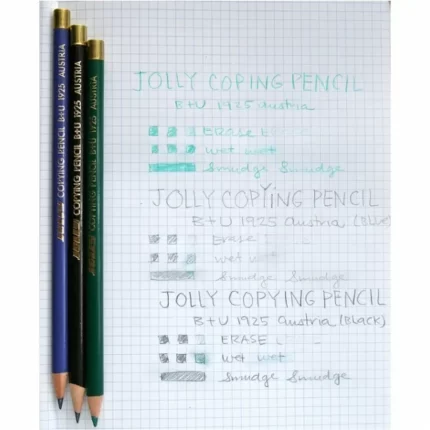 JOLLY COPYING PENCIL B+U 1925 AUSTRIA
JOLLY COPYING PENCIL B+U 1925 AUSTRIA
JOLLY COPYING PENCIL B+U 1925 AUSTRIA
JOLLY COPING PENCIL
B+U 1925 Austria
ERASE E
Wet wet
Smudge Smudge
JOLLY COPYING PENCIL
B+U 1925 Austria (Blue)
Erase
wet wet
Smudge Smudge
JOLLY COPYING PENCIL
B+U 1925 Austria (Black)
ERASE
Wet wet
Smudge Smudge